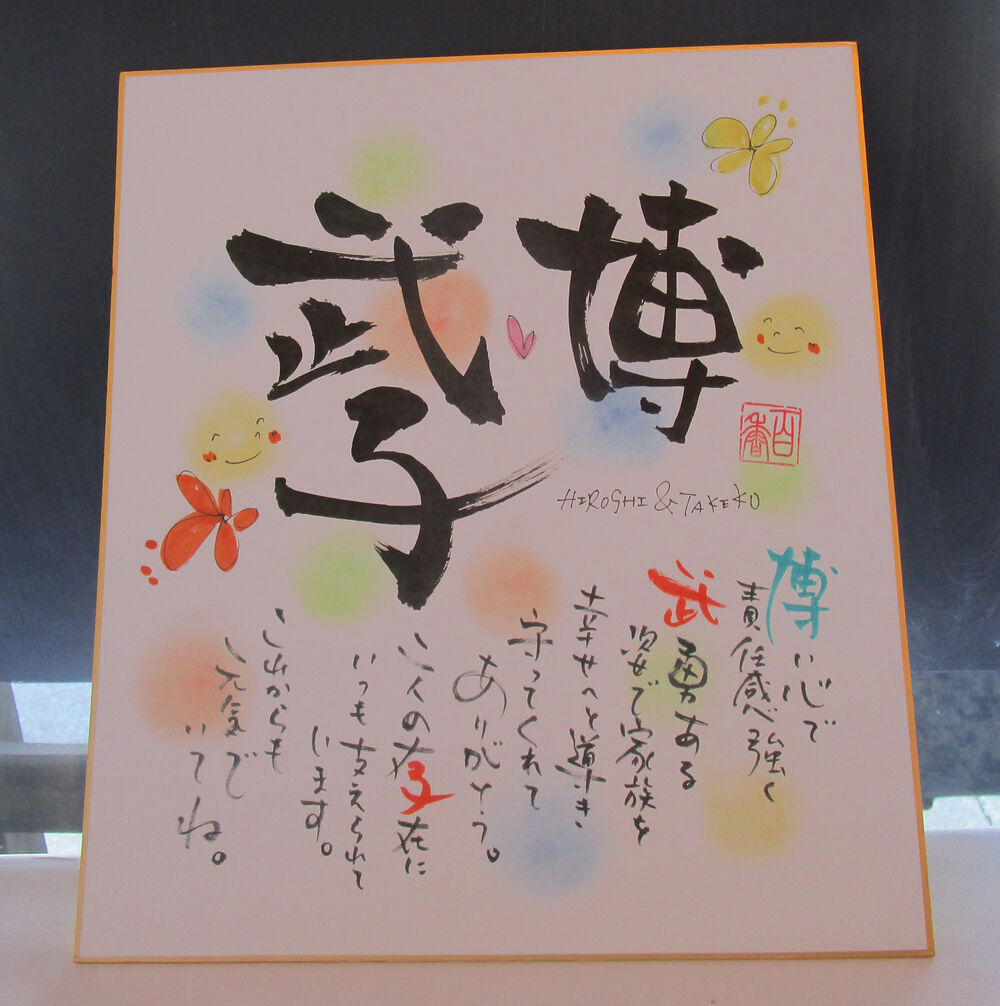 博
武子
百香
HIROSHI & TAKEKO
博い心で
責任感強く
武勇ある
姿で家族を
幸せへと導き、
守ってくれて
ありがとう。
二人の存在に
いつも支えられて
います。
これからも
元気で
いてね。